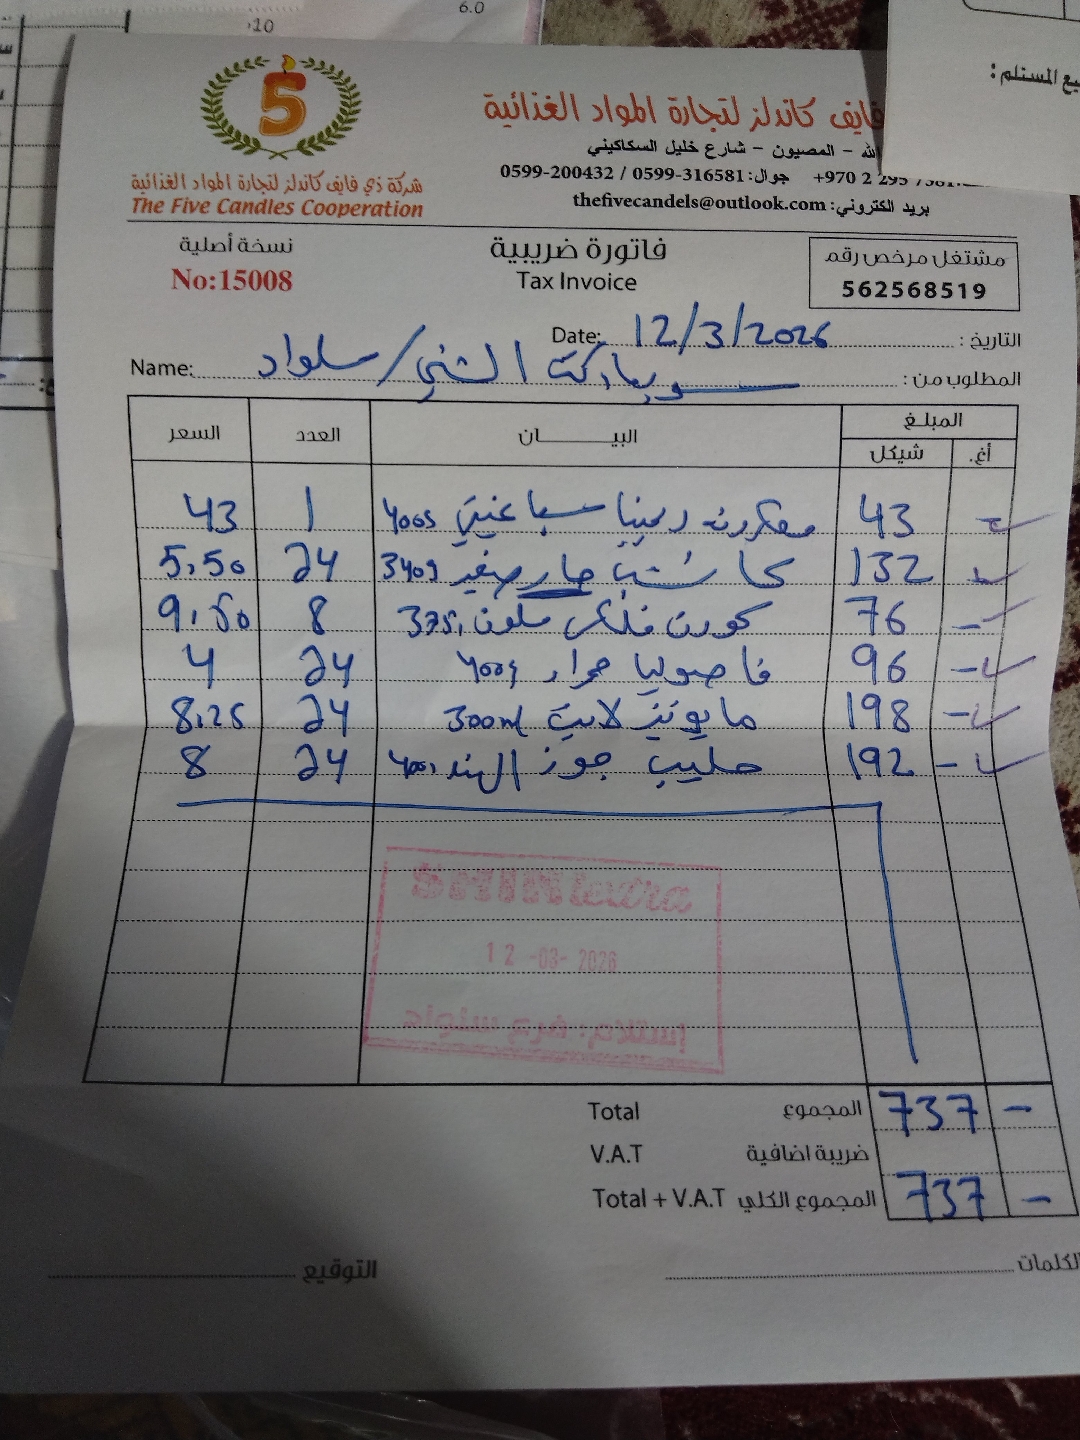 6.0
10
يع المستلم :
5
فايف كاندلز لتجارة المواد الغذائية
الله - المصيون - شارع خليل السكاكيني
+970 2 295 7381 جوال: 0599-316581 / 0599-200432
بريد الكتروني: thefivecandels@outlook.com
شركة ذي فايف كاندلز لتجارة المواد الغذائية
The Five Candles Cooperation
مشتغل مرخص رقم
562568519
فاتورة ضريبية
Tax Invoice
نسخة أصلية
No:15008
التاريخ : 12/3/2026 Date:
المطلوب من : سوبر ماركت الشني / سلواد Name:
المبلغ البيــــــان العدد السعر
أغ. شيكل
- 43 معكرونه ديمينا سباغيتي 400g 1 43
- 132 كاتشب حار صغير 340g 24 5.50
- 76 كورن فلكس سلفون 375g 8 9.50
- 96 فاصوليا حمراء 400g 24 4
- 198 مايونيز لايت 300ml 24 8.25
- 192 حليب جوز الهند 400 24 8
12-03-2026
إستلام: فرع سلواد
- 737 المجموع Total
ضريبة اضافية V.A.T
- 737 المجموع الكلي Total + V.A.T
الكلمات
التوقيع